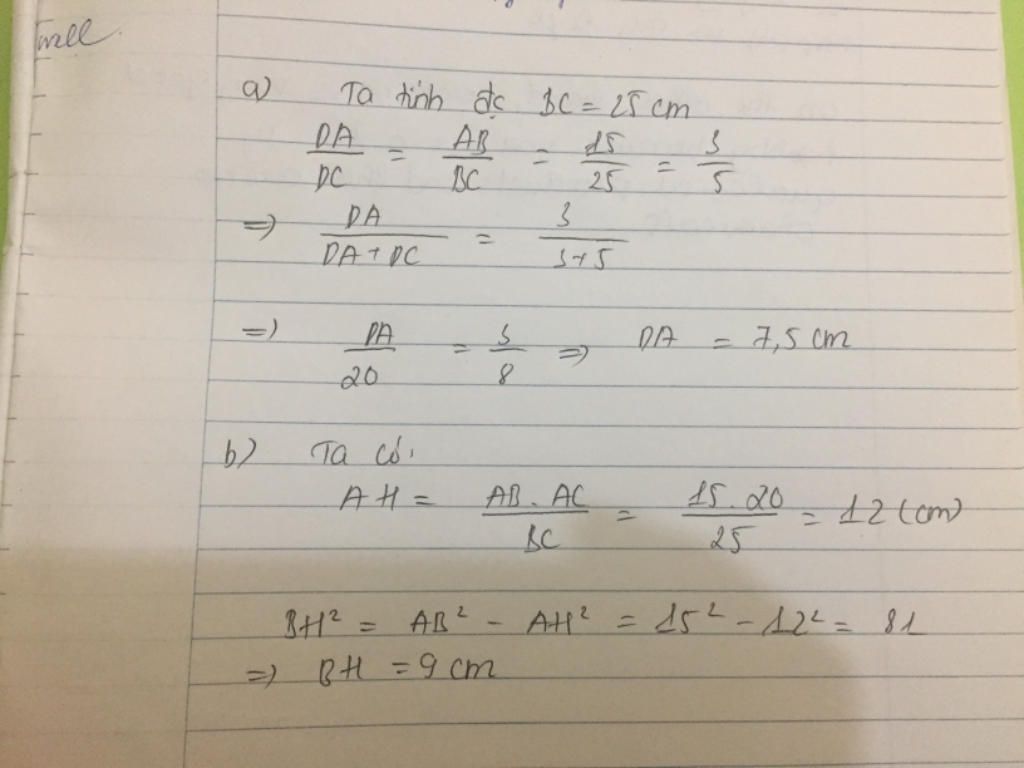 well.
a) Ta tính đc BC = 25 cm
DA/DC = AB/BC = 15/25 = 3/5
=> DA/(DA + DC) = 3/(3+5)
=> DA/20 = 3/8 => DA = 7,5 cm
b) Ta có:
AH = AB . AC/BC = 15 . 20/25 = 12 (cm)
BH² = AB² - AH² = 15² - 12² = 81
=> BH = 9 cm